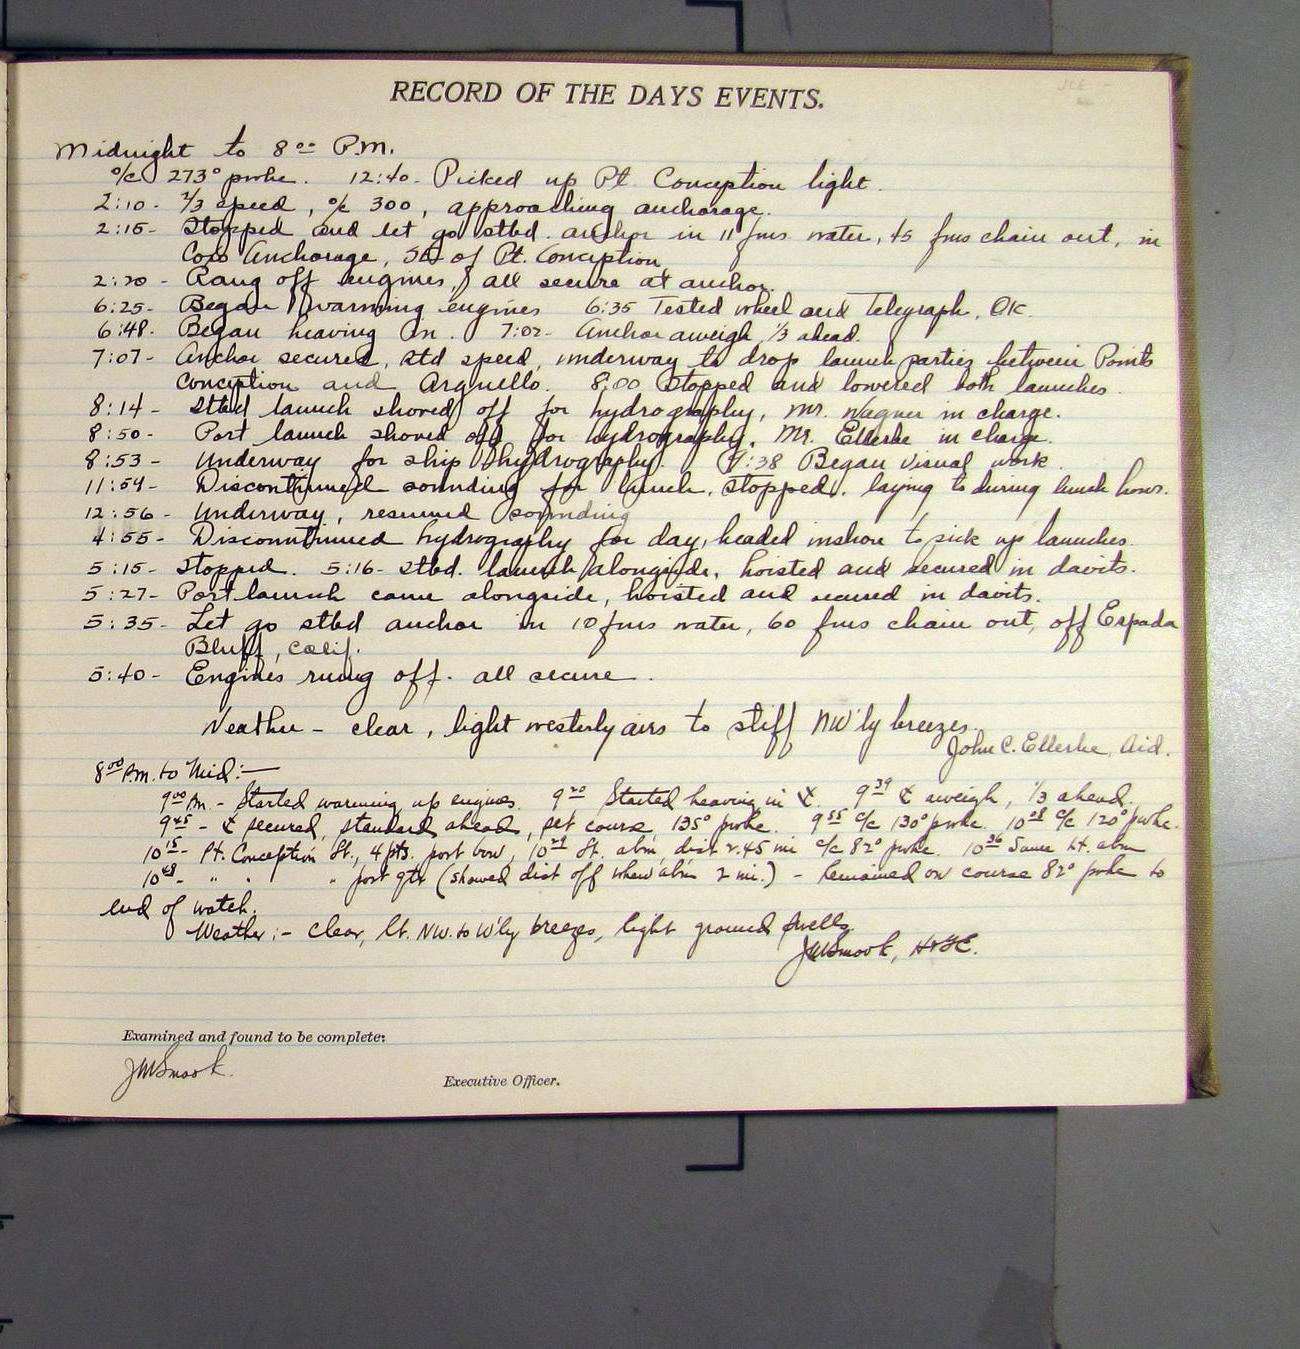 RECORD OF THE DAYS EVENTS.
Midnight to 8 00 P.M.
o/c 273° pwhc. 12:40 - Picked up Pt. Conception light.
2:10 - 2/3 speed, o/c 300, approaching anchorage.
2:15 - Stopped and let go stbd. anchor in 11 fms water, 45 fms chain out, in
Cojo Anchorage, of Pt. Conception
2:20 - Rang off engines, all secure at anchor.
6:25 - Began warming engines 6:35 Tested wheel and Telegraph, OK.
6:48 - Began heaving in. 7:02 - Anchor aweigh, 1/3 ahead.
7:07 - Anchor secured, std speed, underway to drop launch parties between Points
Conception and Arguello. 8:00 Stopped and lowered both launches.
8:14 - Stbd launch shoved off for hydrography, Mr. Wagner in charge.
8:50 - Port launch shoved off for hydrography, Mr. Ellerbe in charge.
8:53 - Underway for ship hydrography. 9:38 Began visual work.
11:54 - Discontinued sounding for lunch, stopped, laying to during lunch hour.
12:56 - Underway, resumed sounding
4:55 - Discontinued hydrography for day, headed inshore to pick up launches.
5:15 - Stopped. 5:16 - Stbd. launch alongside, hoisted and secured in davits.
5:27 - Port launch came alongside, hoisted and secured in davits.
5:35 - Let go stbd anchor in 10 fms water, 60 fms chain out, off Espada
Bluff, Calif.
5:40 - Engines rung off. all secure.
Weather - clear, light westerly airs to stiff NW'ly breezes.
John C. Ellerbe, Aid.
8 00 P.M. to Mid: -
9 00 P.M. - Started warming up engines. 9 20 Started heaving in ⚓. 9 39 ⚓ aweigh, 1/3 ahead.
9 45 - ⚓ secured, standard ahead, set course 135° pwhc. 9 55 c/c 130° pwhc. c/c 120° pwhc.
10 15 - Pt. Conception Lt., 4 pts. port bow, 10 29 Lt. abm, dist 2.45 mi c/c 82° pwhc. 10 36 Same Lt. abm
10 48 - " " " port qtr (showed dist off when abm 2 mi.) - Remained on course 82° pwhc to
end of watch.
Weather: - clear, Lt. NW. to W'ly breezes, light ground swells
JM Smook, H&GE.
Examined and found to be complete:
JM Smook.
Executive Officer.